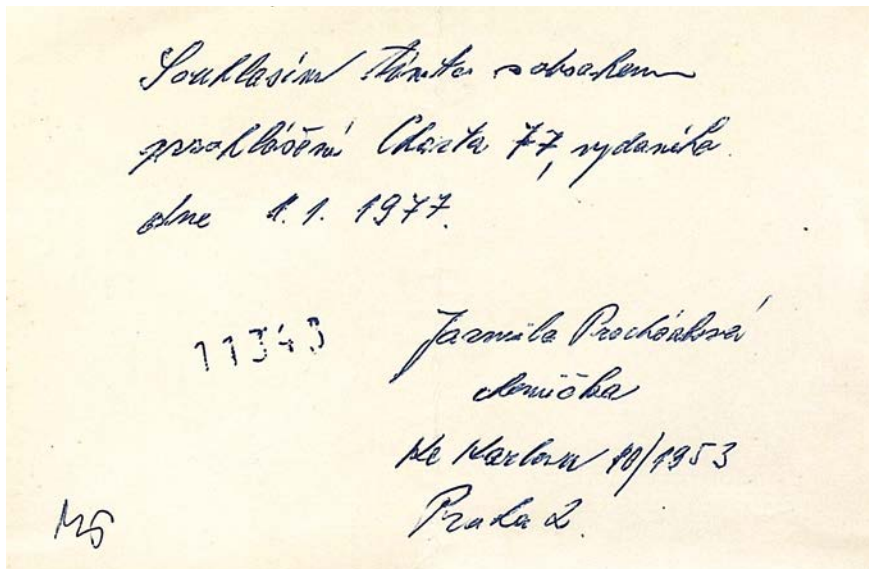 Souhlasím tímto s obsahem
prohlášení Charta 77, vydaného
dne 1.1. 1977.
11343
Jarmila Procházková
chemička
Ke Karlovu 10/1953
Praha 2.